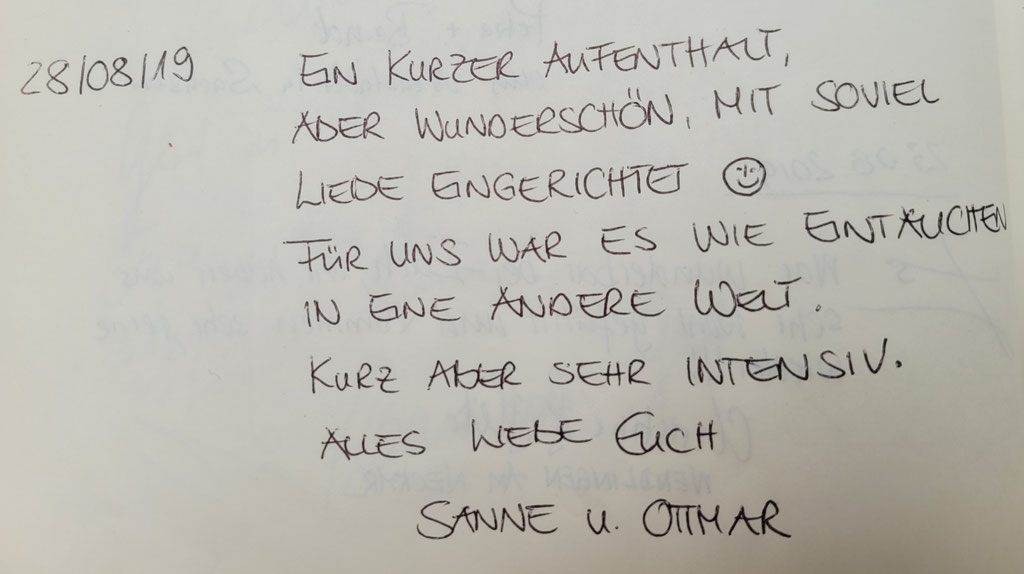 28/08/19 EIN KURZER AUFENTHALT,
ABER WUNDERSCHÖN, MIT SOVIEL
LIEBE EINGERICHTET ☺
FÜR UNS WAR ES WIE EINTAUCHEN
IN EINE ANDERE WELT.
KURZ ABER SEHR INTENSIV.
ALLES LIEBE EUCH
SANNE u. OTTMAR